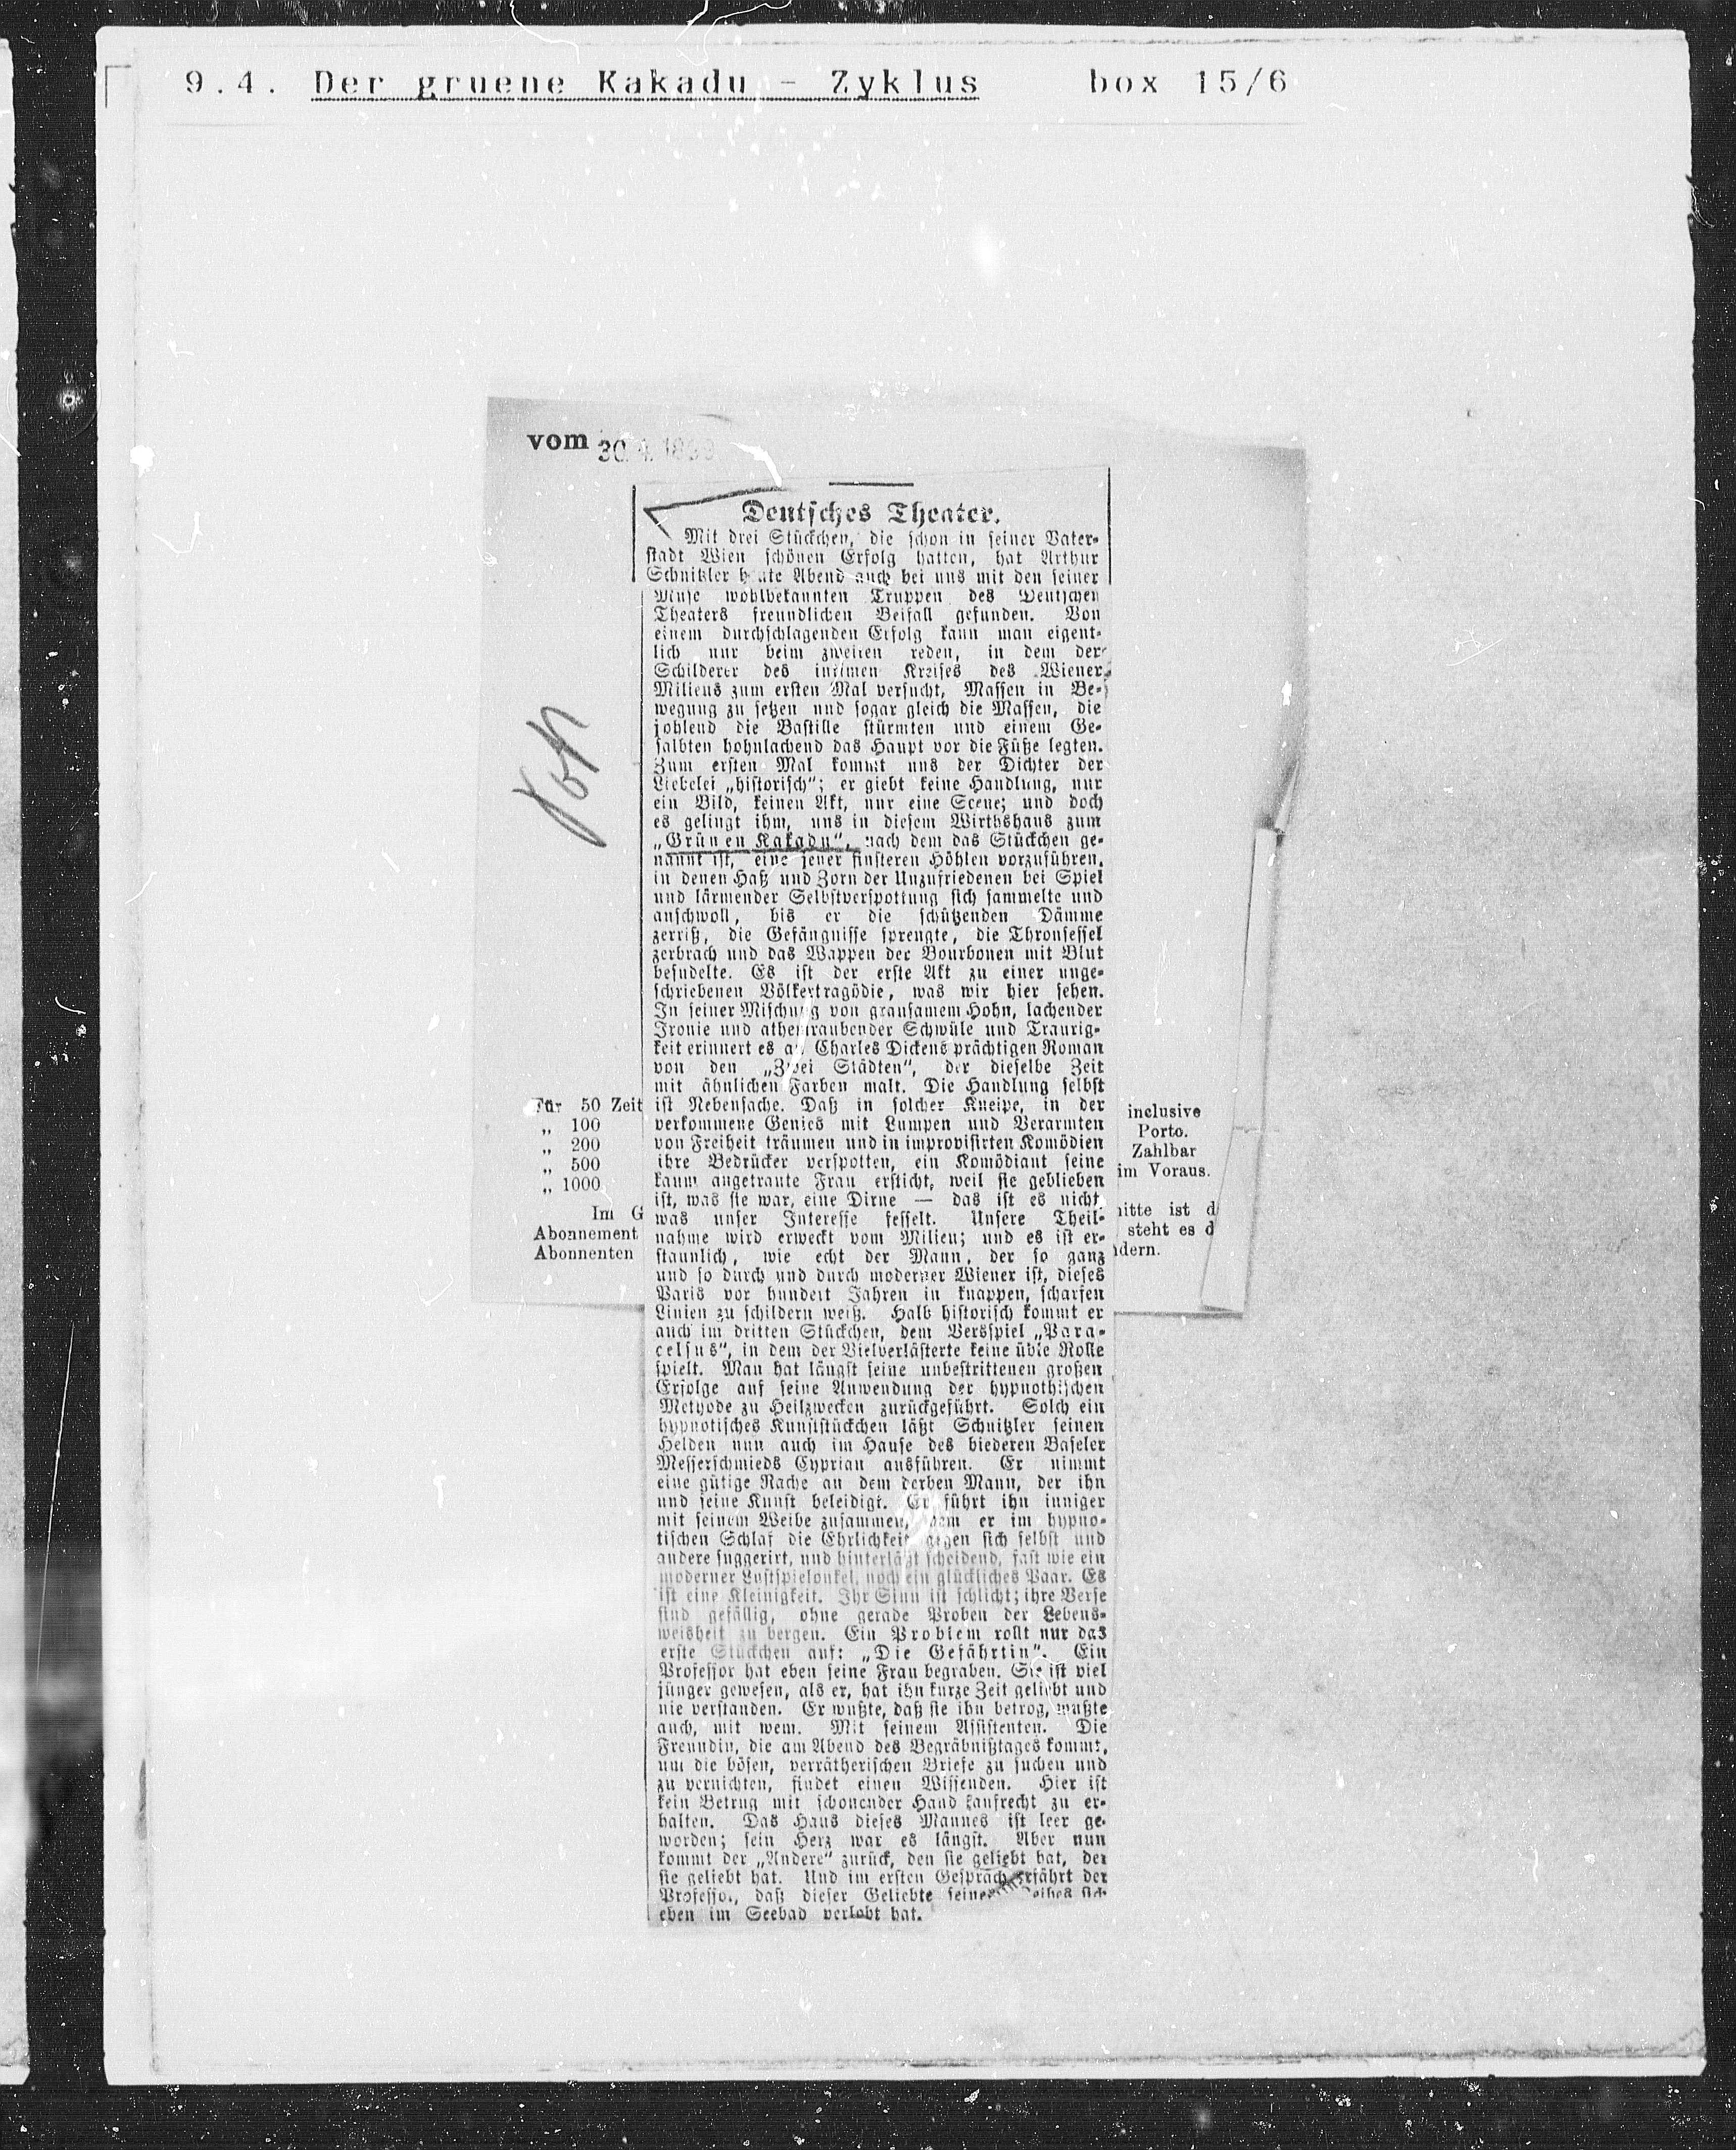 9.4. Der gruene Kakadu - Zyklus box 15/6
vom 30.4.1899
Deutsches Theater.
Mit drei Stückchen, die schon in seiner Vater-
stadt Wien schönen Erfolg hatten, hat Arthur
Schnitzler heute Abend auch bei uns mit den seiner
Muse wohlbekannten Truppen des Deutschen
Theaters freundlichen Beifall gefunden. Von
einem durchschlagenden Erfolg kann man eigent-
lich nur beim zweiten reden, in dem der
Schilderer des intimen Kreises des Wiener
Milieus zum ersten Mal versucht, Massen in Be-
wegung zu setzen und sogar gleich die Massen, die
johlend die Bastille stürmten und einem Ge-
salbten hohnlachend das Haupt vor die Füße legten.
Zum ersten Mal kommt uns der Dichter der
Liebelei „historisch“; er giebt keine Handlung, nur
ein Bild, keinen Akt, nur eine Scene; und doch
es gelingt ihm, uns in diesem Wirthshaus zum
„Grünen Kakadu“, nach dem das Stückchen ge-
nannt ist, eine jener finsteren Höhlen vorzuführen,
in denen Haß und Zorn der Unzufriedenen bei Spiel
und lärmender Selbstverspottung sich sammelte und
anschwoll, bis er die schützenden Dämme
zerriß, die Gefängnisse sprengte, die Thronsessel
zerbrach und das Wappen der Bourbonen mit Blut
besudelte. Es ist der erste Akt zu einer unge-
schriebenen Völkertragödie, was wir hier sehen.
In seiner Mischung von grausamem Hohn, lachender
Ironie und athemraubender Schwüle und Traurig-
keit erinnert es an Charles Dickens prächtigen Roman
von den „Zwei Städten“, der dieselbe Zeit
mit ähnlichen Farben malt. Die Handlung selbst
ist Nebensache. Daß in solcher Kneipe, in der
verkommene Genies mit Lumpen und Verarmten
von Freiheit träumen und in improvisirten Komödien
ihre Bedrücker verspotten, ein Komödiant seine
kaum angetraute Frau ersticht, weil sie geblieben
ist, was sie war, eine Dirne — das ist es nicht,
was unser Interesse fesselt. Unsere Theil-
nahme wird erweckt vom Milieu; und es ist er-
staunlich, wie echt der Mann, der so ganz
und so durch und durch moderner Wiener ist, dieses
Paris vor hundert Jahren in knappen, scharfen
Linien zu schildern weiß. Halb historisch kommt er
auch im dritten Stückchen, dem Versspiel „Para-
celsus“, in dem der Vielverlästerte keine üble Rolle
spielt. Man hat längst seine unbestrittenen großen
Erfolge auf seine Anwendung der hypnothischen
Methode zu Heilzwecken zurückgeführt. Solch ein
hypnotisches Kunststückchen läßt Schnitzler seinen
Helden nun auch im Hause des biederen Baseler
Messerschmieds Cyprian ausführen. Er nimmt
eine gütige Rache an dem derben Mann, der ihn
und seine Kunst beleidigt. Er führt ihn inniger
mit seinem Weibe zusammen, dem er im hypno-
tischen Schlaf die Ehrlichkeit gegen sich selbst und
andere suggerirt, und hinterläßt scheidend, fast wie ein
moderner Lustspielonkel, noch ein glückliches Paar. Es
ist eine Kleinigkeit. Ihr Sinn ist schlicht; ihre Verse
sind gefällig, ohne gerade Proben der Lebens-
weisheit zu bergen. Ein Problem rollt nur das
erste Stückchen auf: „Die Gefährtin“. Ein
Professor hat eben seine Frau begraben. Sie ist viel
jünger gewesen, als er, hat ihn kurze Zeit geliebt und
nie verstanden. Er wußte, daß sie ihn betrog, wußte
auch, mit wem. Mit seinem Assistenten. Die
Freundin, die am Abend des Begräbnißtages kommt,
um die bösen, verrätherischen Briefe zu suchen und
zu vernichten, findet einen Wissenden. Hier ist
kein Betrug mit schonender Hand aufrecht zu er-
halten. Das Haus dieses Mannes ist leer ge-
worden; sein Herz war es längst. Aber nun
kommt der „Andere“ zurück, den sie geliebt hat, der
sie geliebt hat. Und im ersten Gespräch erfährt der
Professor, daß dieser Geliebte seines Weibes sich
eben im Seebad verlobt hat.
Für 50 Zeit
„ 100
„ 200
„ 500
„ 1000
Im G
Abonnement
Abonnenten
inclusive
Porto.
Zahlbar
im Voraus.
nitte ist d
steht es d
ndern.